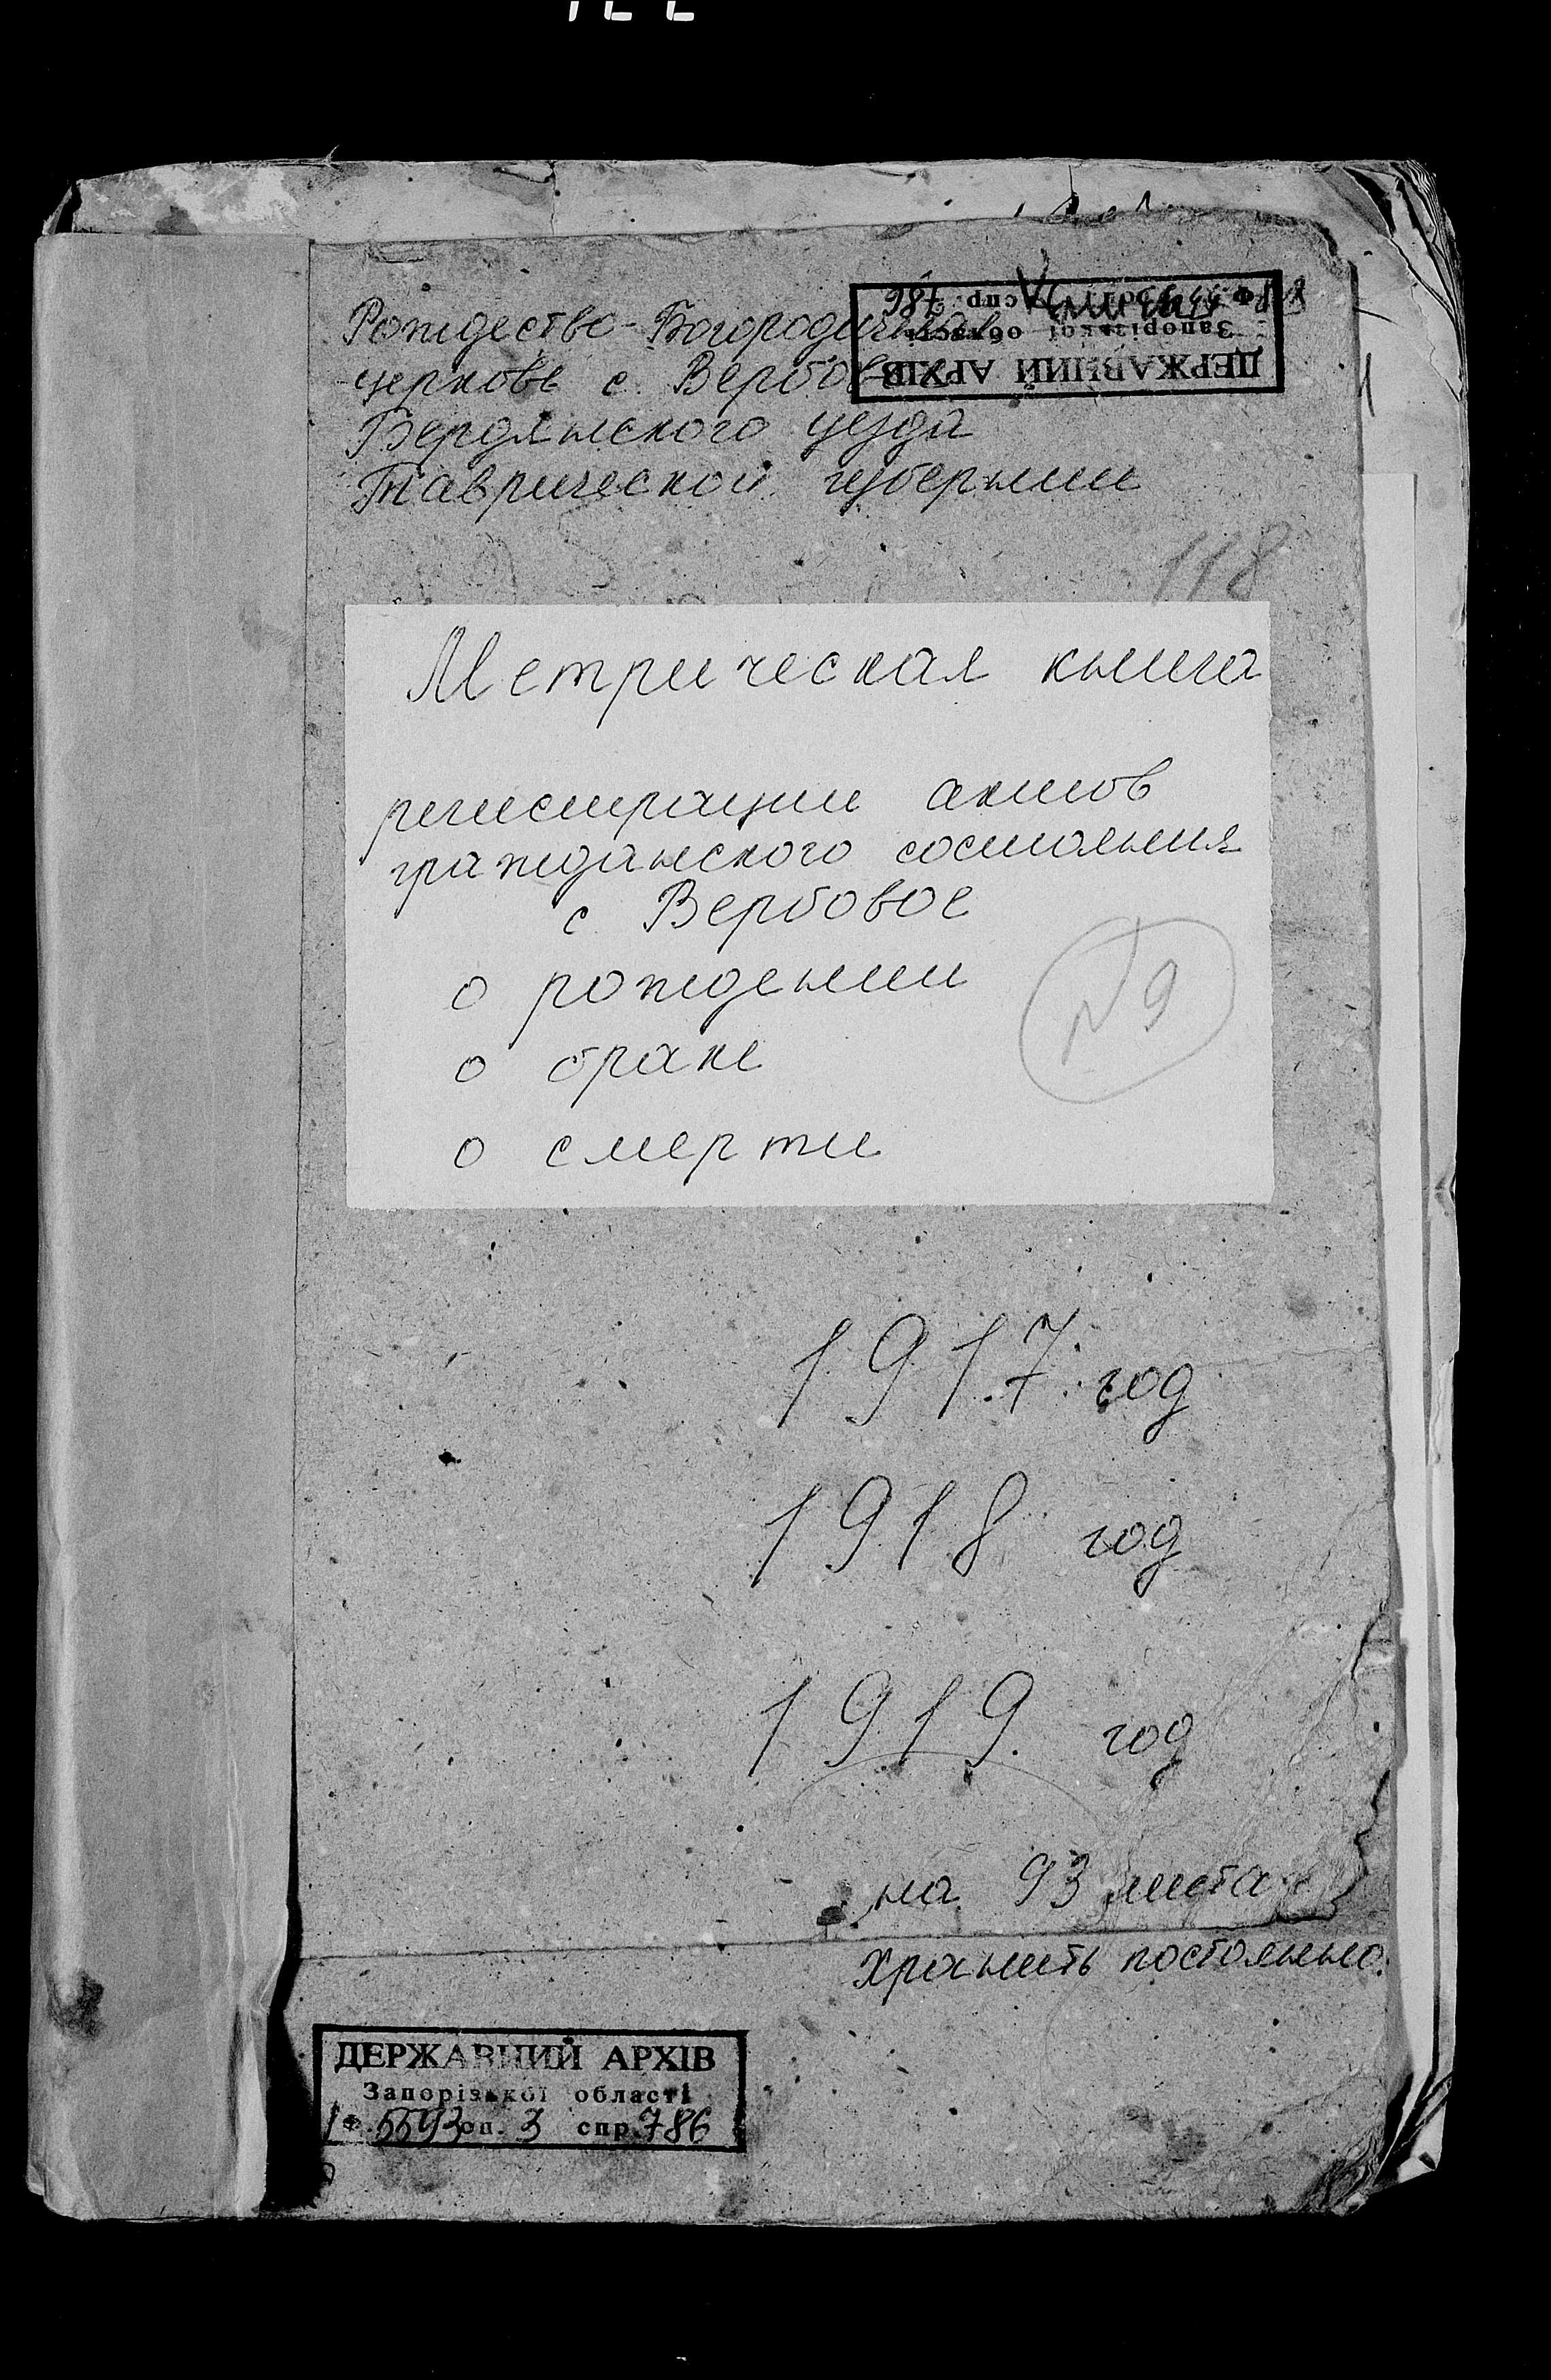 Рождество-Богородичная
церковь с. Вербовое
Бердянского уезда
Таврической губернии
ДЕРЖАВНИЙ АРХІВ
Запорізької області
спр. 786
118
Метрическая книга
регистрации актов
гражданского состояния
с. Вербовое
о рождении
№ 9
о браке
о смерти
1917 год
1918 год
1919 год
на 93 листах
Хранить постоянно.
ДЕРЖАВНИЙ АРХІВ
Запорізької області
Ф. 5593 оп. 3 спр. 786